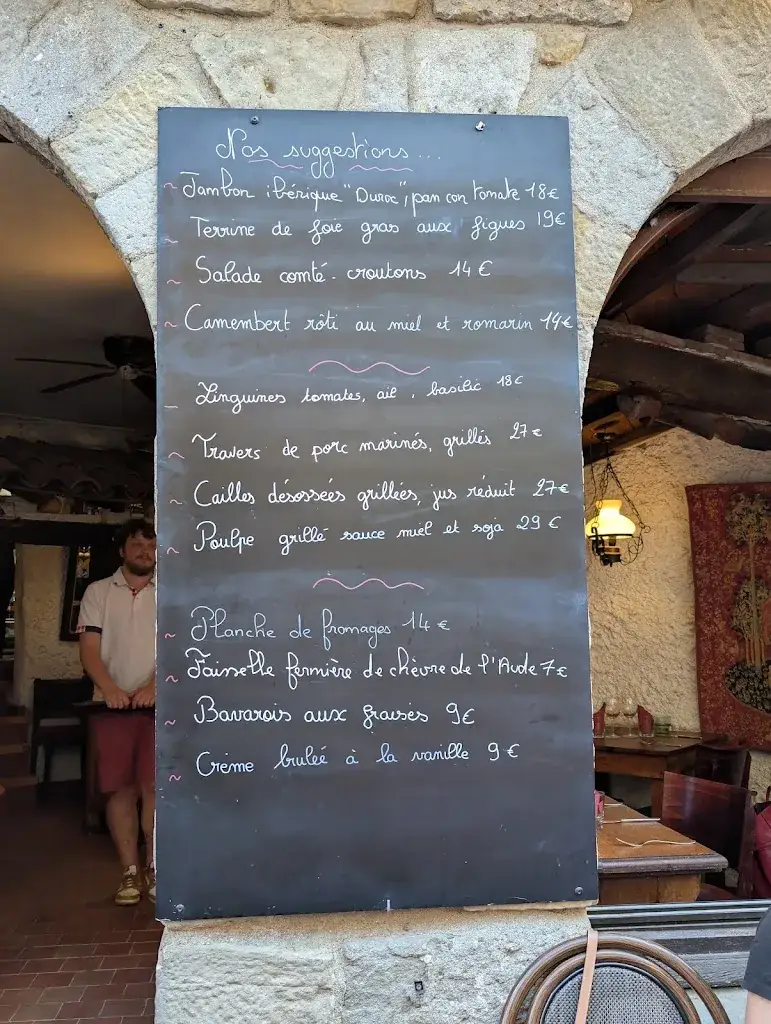 Nos suggestions...
~ Jambon ibérique "Duroc", pan con tomate 18€
~ Terrine de foie gras aux figues 19€
~ Salade comté - croutons 14€
~ Camembert rôti au miel et romarin 14€
~ Linguines tomates, ail, basilic 18€
~ Travers de porc marinés, grillés 27€
~ Cailles désossées grillées, jus réduit 27€
~ Poulpe grillé sauce miel et soja 29€
~ Planche de fromages 14€
~ Faisselle fermière de chèvre de l'Aude 7€
~ Bavarois aux fraises 9€
~ Crème brulée à la vanille 9€